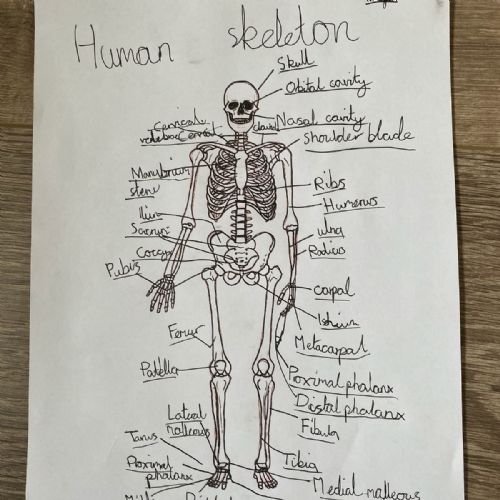 Human skeleton
Skull
Orbital cavity
Nasal cavity
Cervical
clavicle
shoulder blade
Manubrium
Ribs
Humerus
Ilium
ulna
Sacrum
Radius
Coccyx
Pubis
carpal
Ishium
Femur
Metacarpal
Patella
Proximal phalanx
Distal phalanx
Lateral
malleous
Fibula
Tarus
Tibia
Proximal
phalanx
Medial malleous